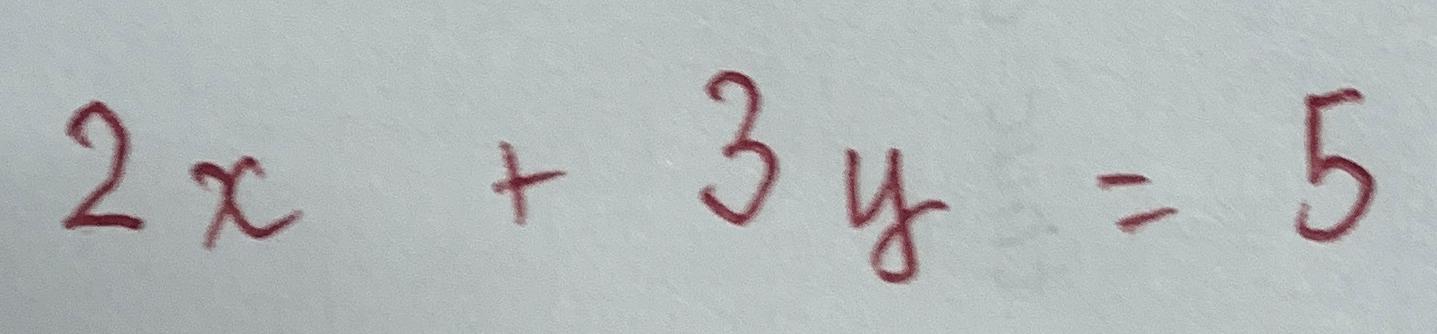 2x + 3y = 5